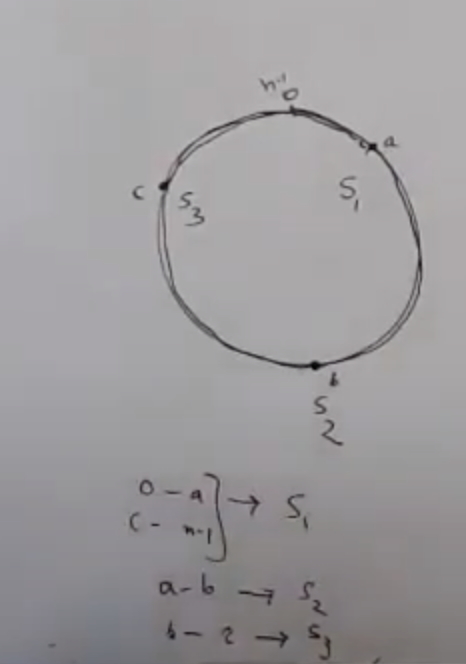 n-1
0
a
c
S3
S1
b
S2
0 - a
c - n-1
→ S1
a - b → S2
b - 2 → S3